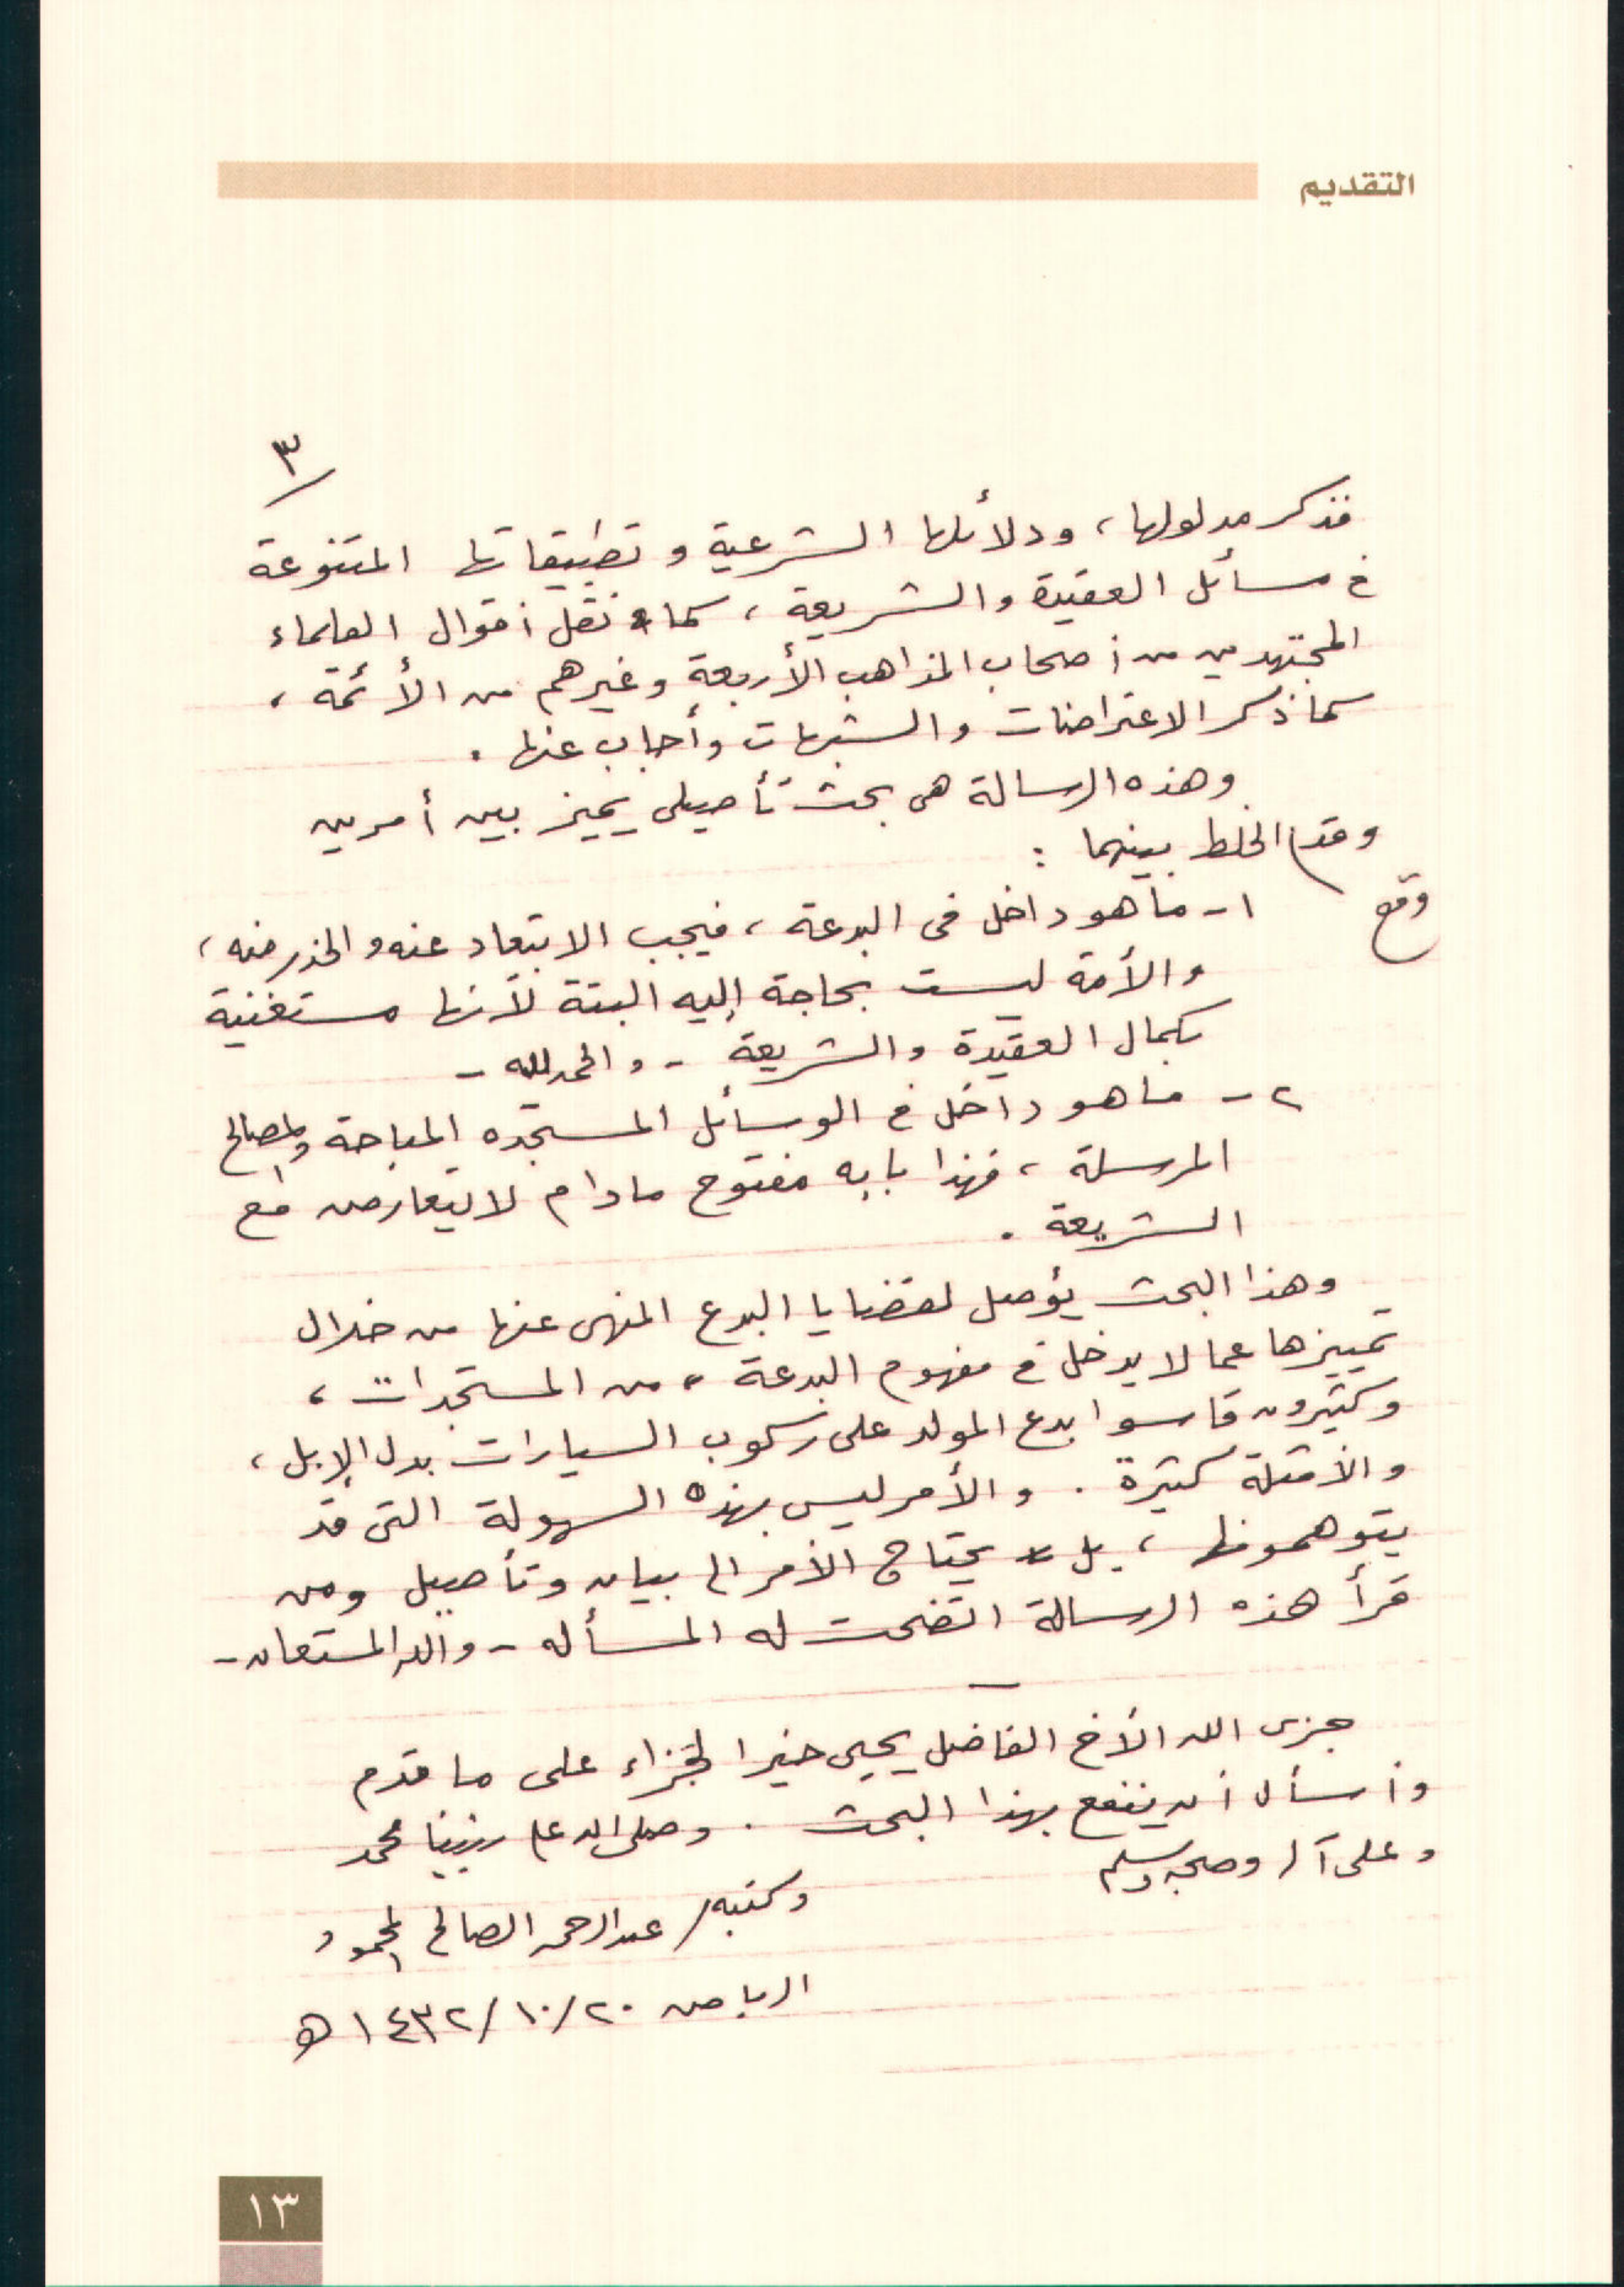 التقديم
٣
فذكر مدلولها، ودلائلها الشرعية وتطبيقاتها المتنوعة
في مسائل العقيدة والشريعة، كما نقل أقوال العلماء
المجتهدين من أصحاب المذاهب الأربعة وغيرهم من الأئمة،
كما ذكر الاعتراضات والشبهات وأجاب عنها.
وهذه الرسالة هي بحث تأصيلي يميز بين أمرين
وقد الخلط بينهما :
وقع
١- ما هو داخل في البدعة، فيجب الابتعاد عنه والحذر منه،
والأمة ليست بحاجة إليه البتة لأنها مستغنية
بكمال العقيدة والشريعة - والحمد لله -
٢- ما هو داخل في الوسائل المستجده المباحة والمصالح
المرسلة، فهذا بابه مفتوح مادام لا يتعارض مع
الشريعة.
وهذا البحث يؤصل لقضايا البدع المنهي عنها من خلال
تمييزها عما لا يدخل في مفهوم البدعة، من المستجدات،
وكثيرون قاسوا بدع المولد على ركوب السيارات بدل الإبل،
والأمثلة كثيرة. والأمر ليس بهذه السهولة التي قد
يتوهمونها، بل يحتاج الأمر إلى بيان وتأصيل ومن
قرأ هذه الرسالة اتضحت له المسأله - والله المستعان -
جزى الله الأخ الفاضل يحيى خيرا لجزاء على ما قدم
وأسأل أن ينفع بهذا البحث. وصلى الله على نبينا محمد
وعلى آله وصحبه وسلم
وكتبه/ عبدالرحمن الصالح المحمود
الرياض ٢٠/١٠/١٤٣٢ هـ
١٣